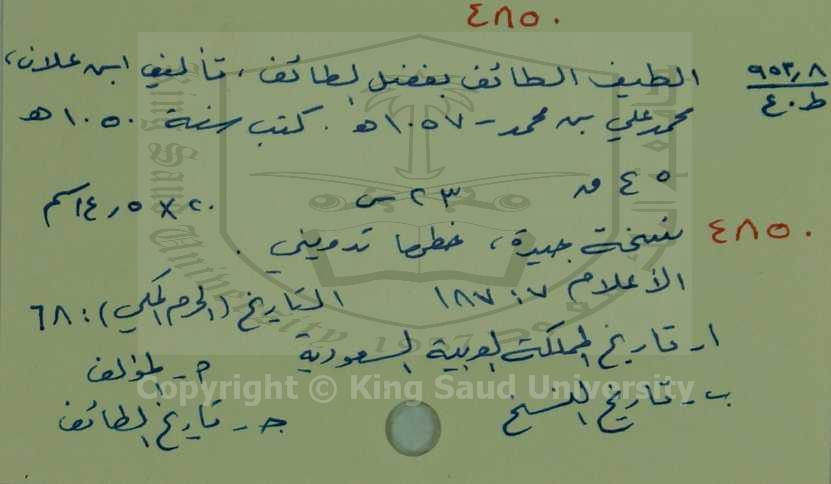 ٤٨٥٠
٩٥٣٫٨
ط٠٤٠
الطيف الطائف بفضل الطائف، تأليف ابن علان،
محمد علي بن محمد - ١٠٥٧هـ. كتب سنة ١٠٥٠هـ
٤٥ ق ٢٣ س ٢٠ × ١٤٫٥سم
٤٨٥٠ نسخة جيدة، خطها تدويني.
الأعلام ٧: ١٨٧ التاريخ (الحرم المكي): ٦٨
١ـ تاريخ المملكة العربية السعودية المؤلف
ب ـ تاريخ النسخ جـ ـ تاريخ الطائف
Copyright © King Saud University
King Saud University
1957